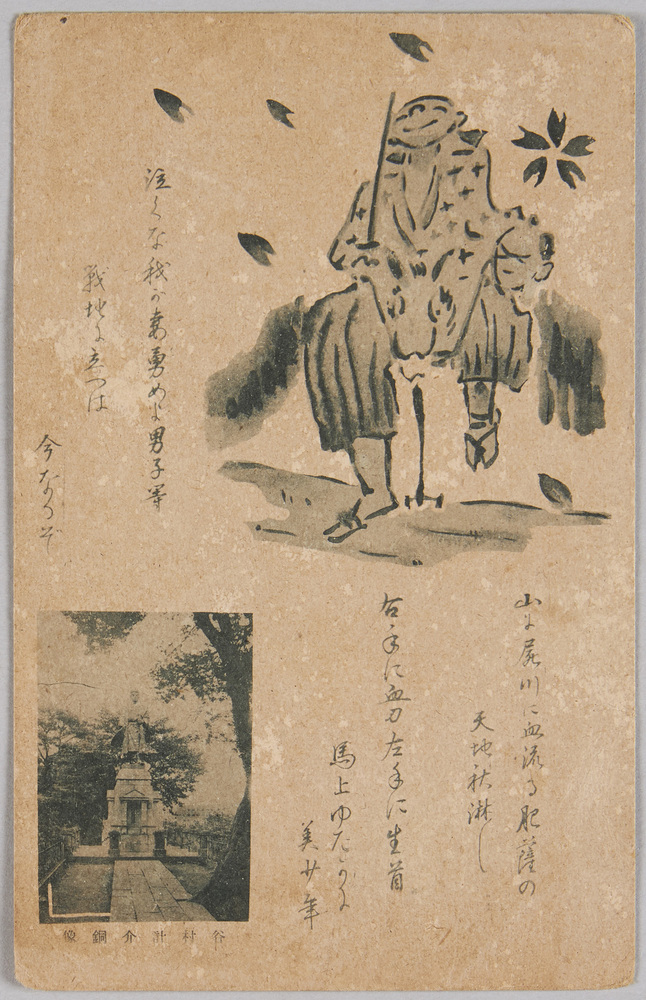 泣くな我が妻勇めよ男子等
戦地に立つは
今なるぞ
山に屍川に血流る肥薩の
天地秋淋し
右手に血刀左手に生首
馬上ゆたかに
美少年
谷村計介銅像